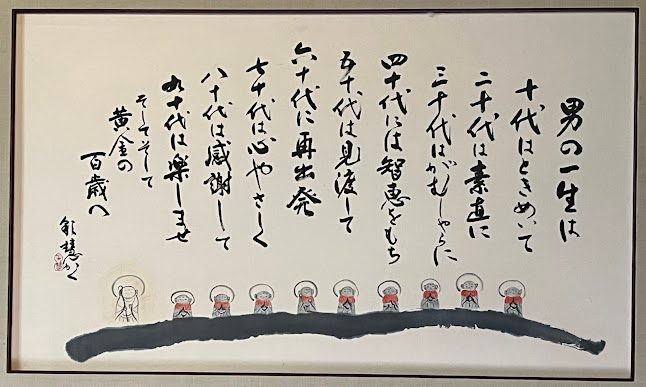 男の一生は
十代はときめいて
二十代は素直に
三十代はがむしゃらに
四十代には智恵をもち
五十代は見渡して
六十代に再出発
七十代は心やさしく
八十代は感謝して
九十代は楽しませ
そしてそして
黄金の
百歳へ